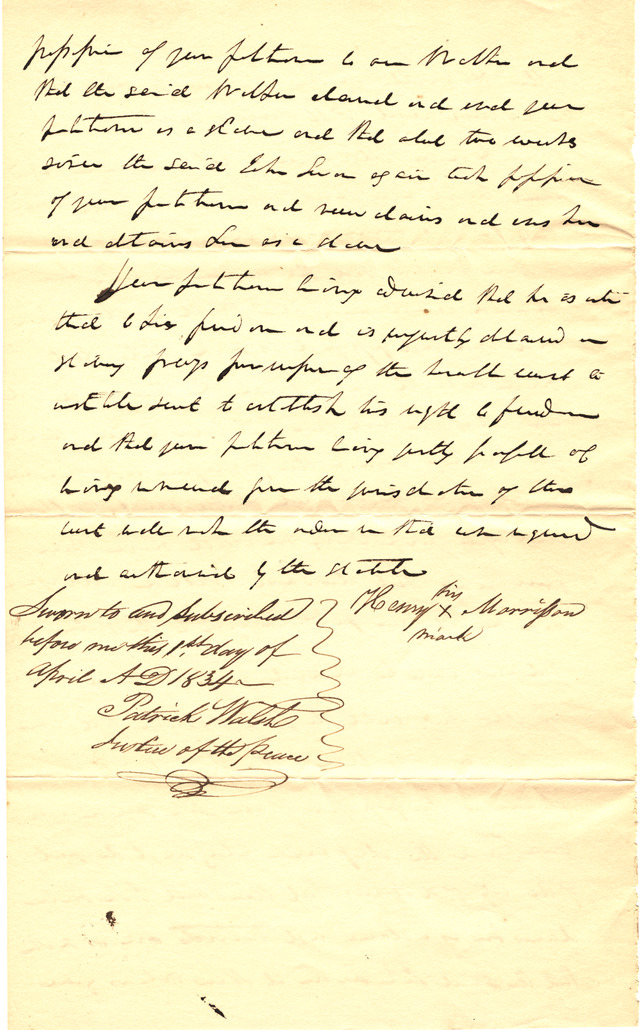 possession of your petitioner to one Walker and
that the said Walker claimed and used your
petitioner as a slave and that about two weeks
since the said again took possession
of your petitioner and now claims and uses him
and detains him as a slave
Your petitioner being advised that he is enti
tled to his freedom and is unjustly detained in
slavery prays permission of the honorable court to
institute suit to establish his right to freedom
and that your petitioner being justly fearful of
being removed from the jurisdiction of this
court will make the order in that case required
and authorised by the statute
Henry his x mark Morrisson
Sworn to and subscribed
before me this 1st day of
April AD 1834
Patrick Walsh
Justice of the Peace